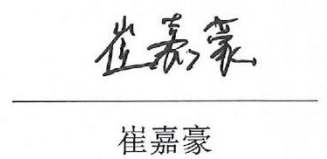 崔嘉豪
崔嘉豪